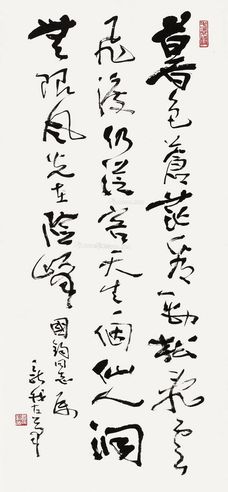 暮色蒼茫看勁松亂雲
飛渡仍從容天生一個仙人洞
無限風光在險峰
國鈞同志屬